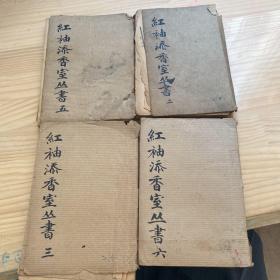 紅袖添香室丛書五
紅袖添香室丛書二
紅袖添香室丛書三
紅袖添香室丛書六